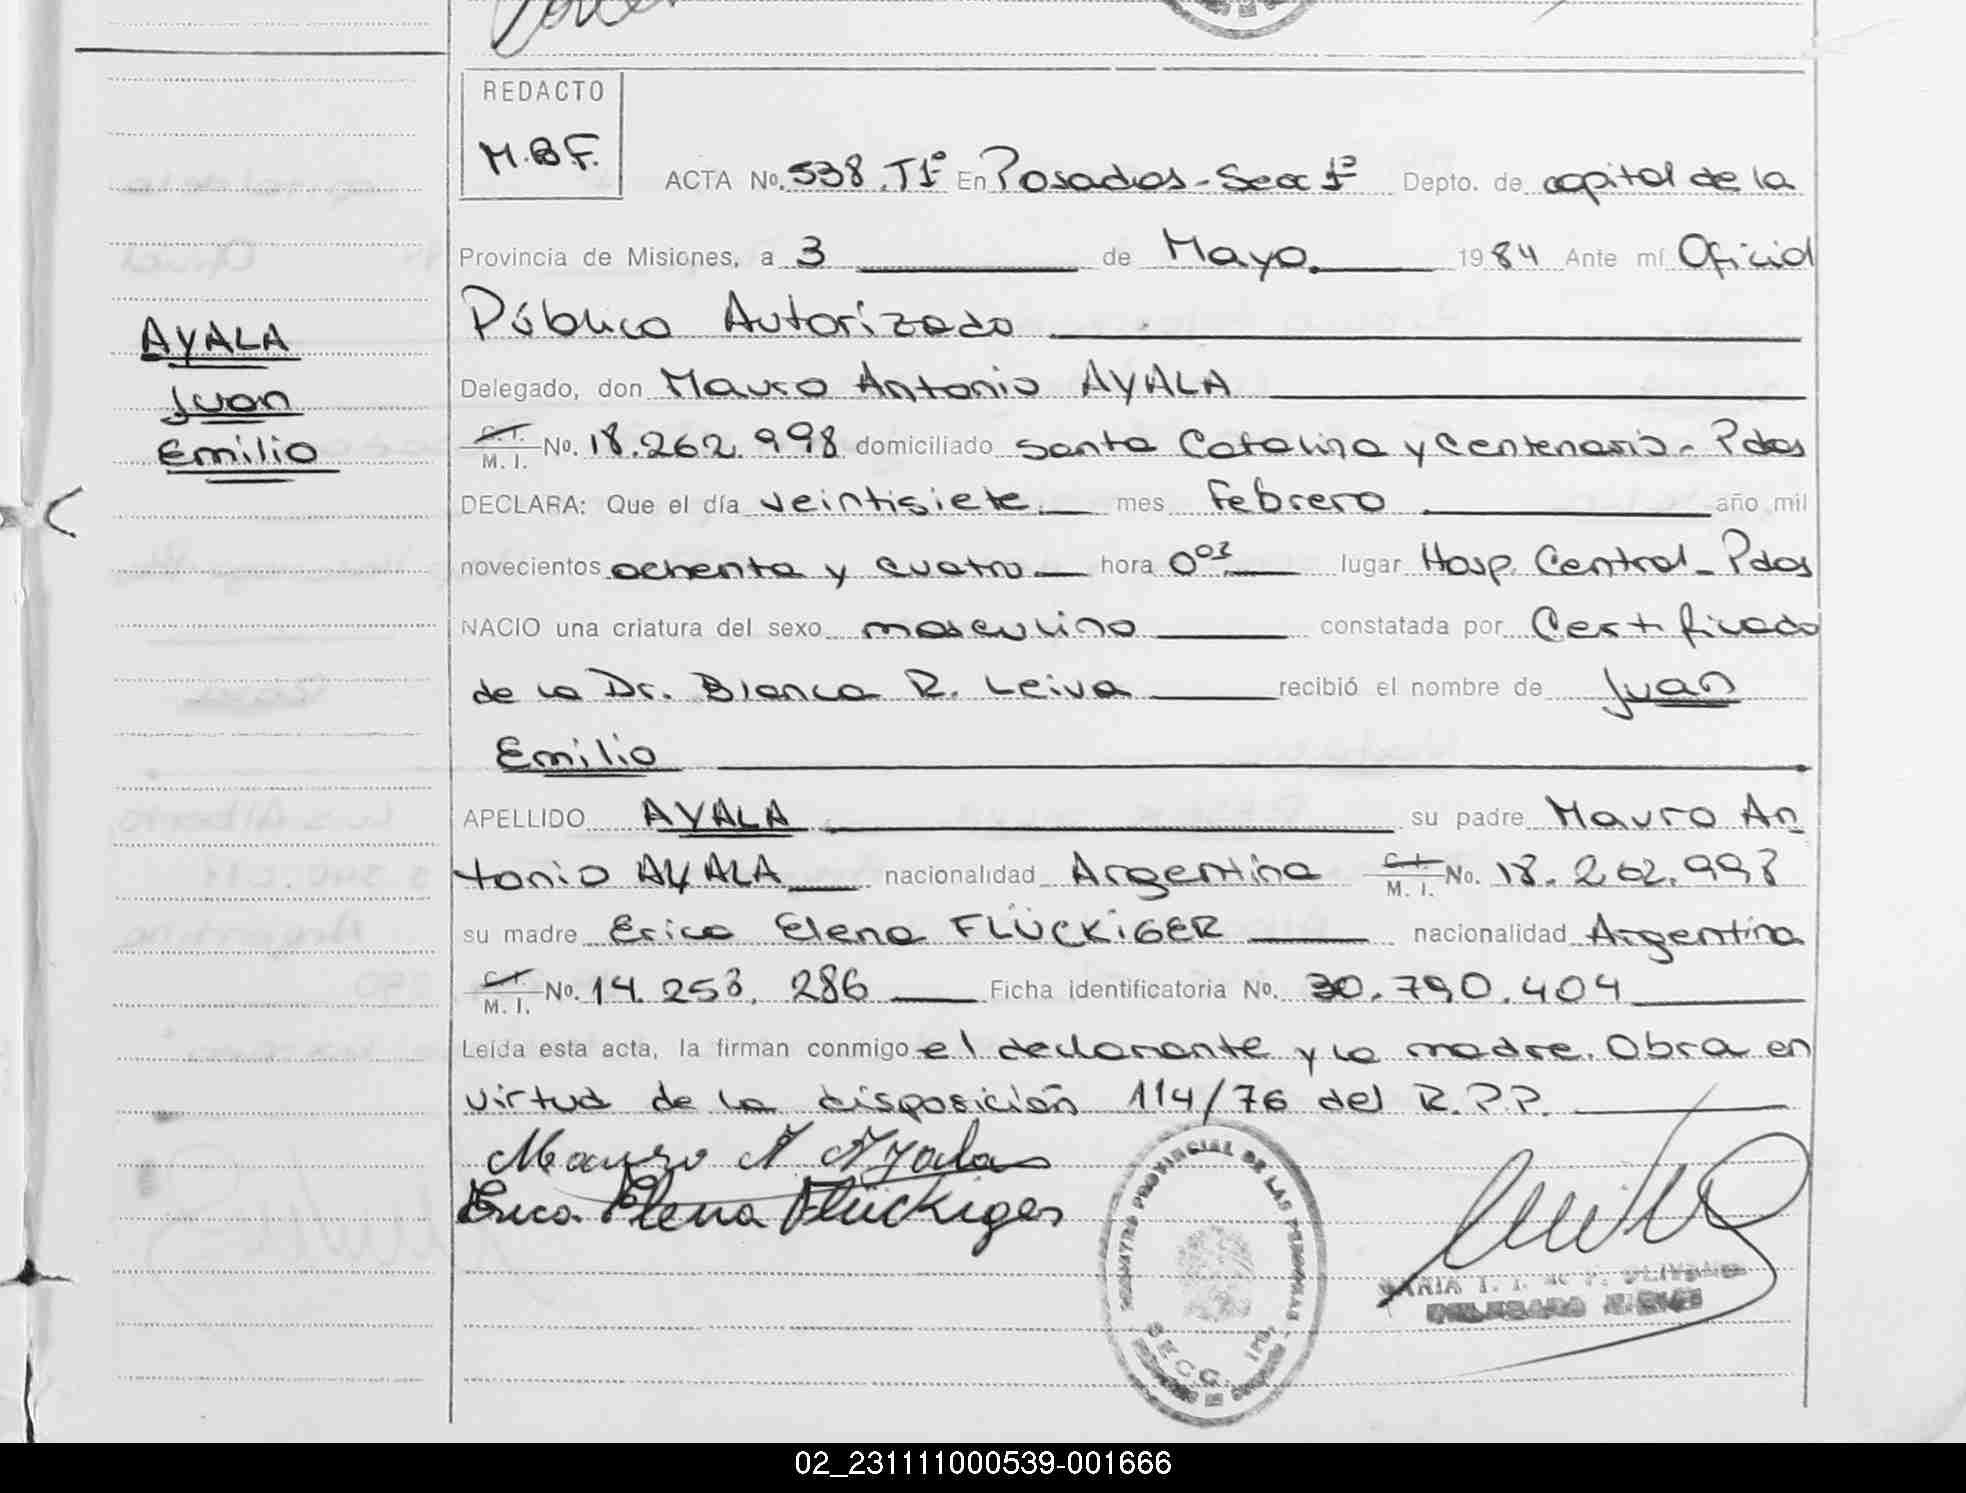 REDACTO
M.B.F.
ACTA No. 538. T1º En Posadas - Secc 1º Depto. de capital de la
Provincia de Misiones, a 3 de Mayo. 1984 Ante mí Oficial
Público Autorizado
AYALA
Juan
Emilio
Delegado, don Mauro Antonio AYALA
C.I. M.I. No. 18.262.998 domiciliado Santa Catalina y Centenario - Pdas
DECLARA: Que el día veintisiete mes febrero año mil
novecientos ochenta y cuatro hora 0 03 lugar Hosp. Central - Pdas
NACIO una criatura del sexo masculino constatada por Certificado
de la Dr. Blanca R. Leiva recibió el nombre de Juan
Emilio
APELLIDO AYALA su padre Mauro An
tonio AYALA nacionalidad Argentina C.I. M.I. No. 18.262.998
su madre Erica Elena FLÜCKiGER nacionalidad Argentina
C.I. M.I. No. 14.253.286 Ficha identificatoria No. 30.790.404
Leída esta acta, la firman conmigo el declarante y la madre. Obra en
virtud de la disposición 114/76 del R.P.P.
Mauro A Ayala
Erica Elena Flückiger
PROVINCIAL DE LAS PERSONAS
SECC. 1ra.
MARIA
02_231111000539-001666